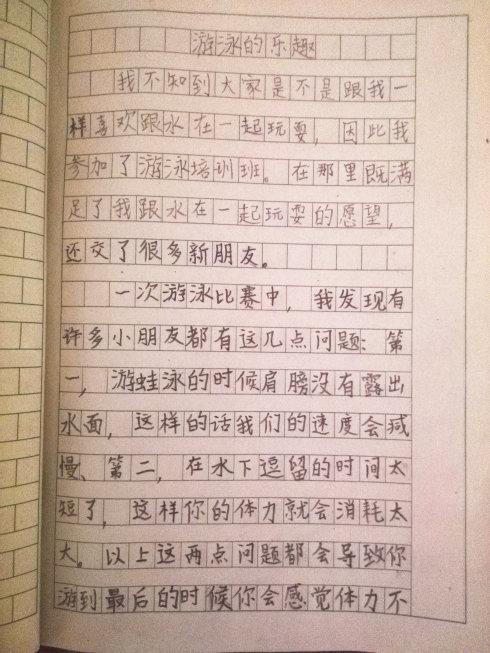 游泳的乐趣
我不知到大家是不是跟我一
样喜欢跟水在一起玩耍，因此我
参加了游泳培训班。在那里既满
足了我跟水在一起玩耍的愿望，
还交了很多新朋友。
一次游泳比赛中，我发现有
许多小朋友都有这几点问题：第
一，游蛙泳的时候肩膀没有露出
水面，这样的话我们的速度会减
慢、第二，在水下逗留的时间太
短了，这样你的体力就会消耗太
大。以上这两点问题都会导致你
游到最后的时候你会感觉体力不